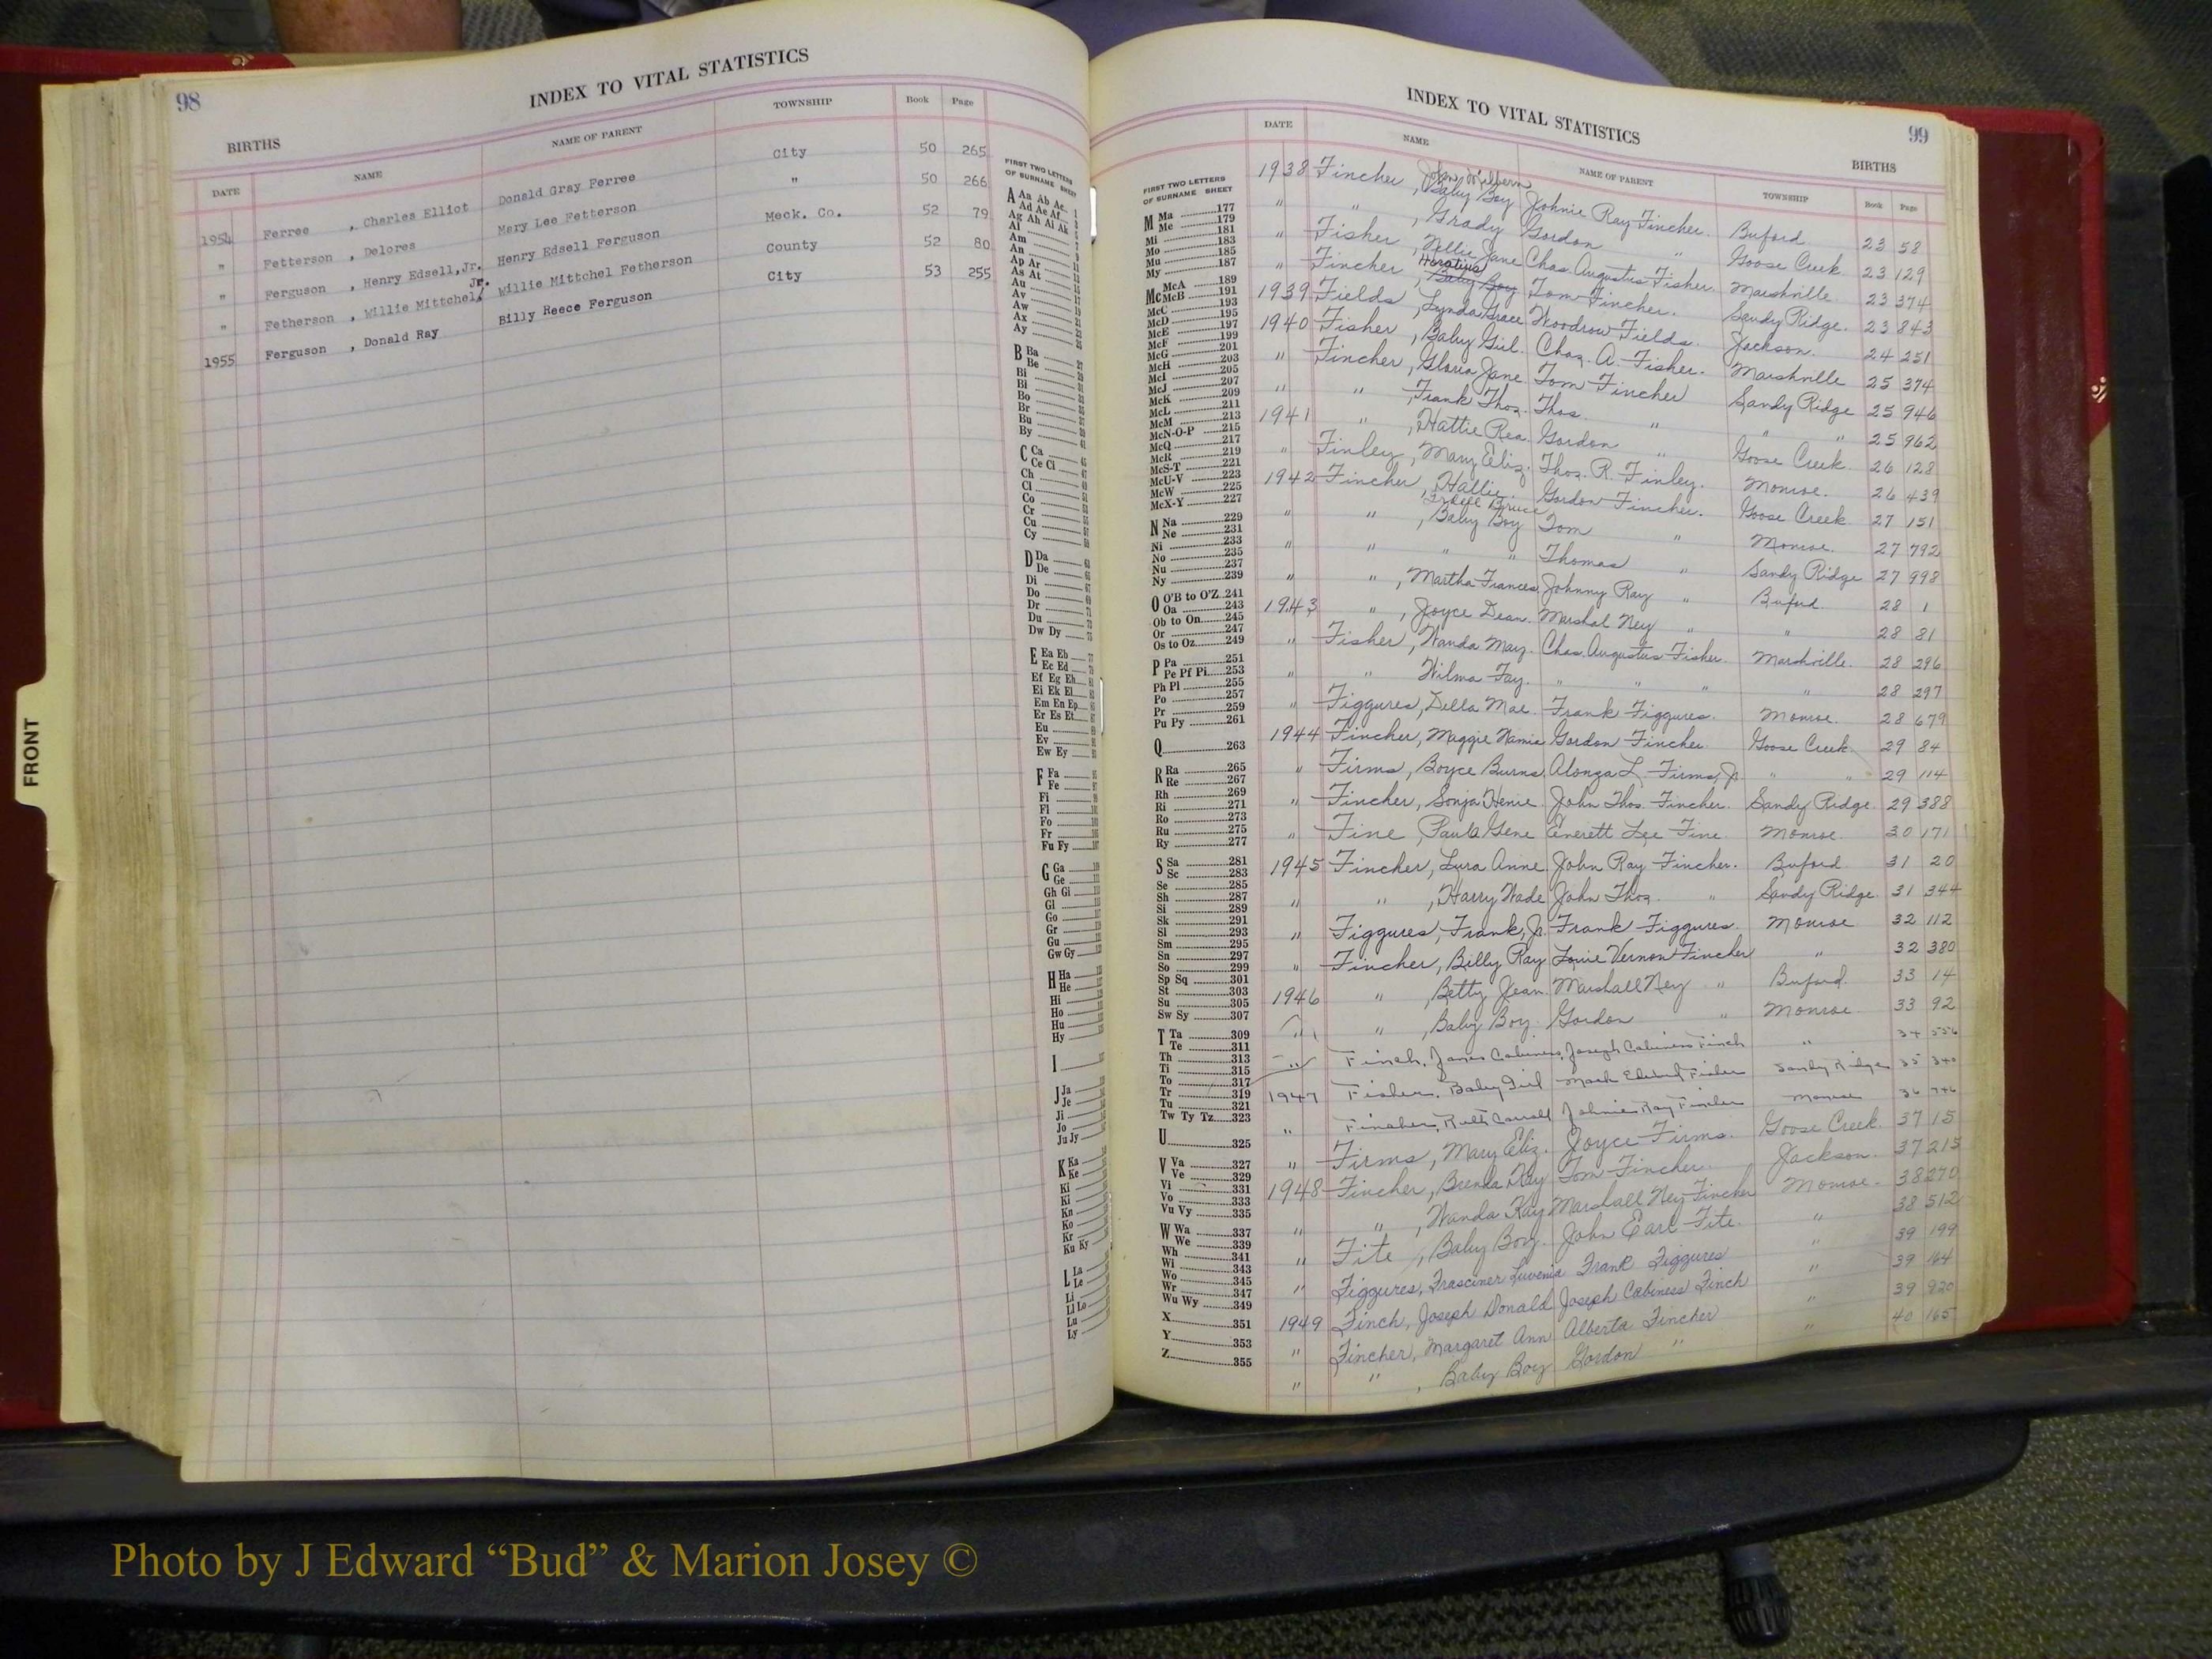 98
INDEX TO VITAL STATISTICS
BIRTHS
DATE NAME NAME OF PARENT TOWNSHIP Book Page
1954 Ferree , Charles Elliot Donald Gray Ferree City 50 265
" Fetterson , Delores Mary Lee Fetterson " 50 266
" Ferguson , Henry Edsell, Jr. Henry Edsell Ferguson Meck. Co. 52 79
" Fetherson , Willie Mittchel, Jr. Willie Mittchel Fetherson County 52 80
1955 Ferguson , Donald Ray Billy Reece Ferguson City 53 255
FIRST TWO LETTERS
OF SURNAME SHEET
A Aa Ab Ac
Ad Ae Af
Ag Ah Ai Ak
Al
Am
An
Ap Ar
As At
Au
Av
Aw
Ax
Ay
B Ba
Be
Bi
Bl
Bo
Br
Bu
By
C Ca
Ce Ci
Ch
Cl
Co
Cr
Cu
Cy
D Da
De
Di
Do
Dr
Du
Dw Dy
E Ea Eb
Ec Ed
Ef Eg Eh
Ei Ek El
Em En Ep
Er Es Et
Eu
Ev
Ew Ey
F Fa
Fe
Fi
Fl
Fo
Fr
Fu Fy
G Ga
Ge
Gh Gi
Gl
Go
Gr
Gu
Gw Gy
H Ha
He
Hi
Ho
Hu
Hy
I
J Ja
Je
Ji
Jo
Ju Jy
K Ka
Ke
Ki
Kn
Ko
Kr
Ku Ky
L La
Le
Li
Ll Lo
Lu
Ly
FRONT
INDEX TO VITAL STATISTICS
99
BIRTHS
FIRST TWO LETTERS
OF SURNAME SHEET
M Ma 177
Me 179
Mi 181
Mo 183
Mu 185
My 187
Mc McA 189
McB 191
McC 193
McD 195
McE 197
McF 199
McG 201
McH 203
McI 205
McJ 207
McK 209
McL 211
McM 213
McN-O-P 215
McQ 217
McR 219
McS-T 221
McU-V 223
McW 225
McX-Y 227
N Na 229
Ne 231
Ni 233
No 235
Nu 237
Ny 239
O O'B to O'Z 241
Oa 243
Ob to On 245
Or 247
Os to Oz 249
P Pa 251
Pe Pf Pi 253
Ph Pl 255
Po 257
Pr 259
Pu Py 261
Q 263
R Ra 265
Re 267
Rh 269
Ri 271
Ro 273
Ru 275
Ry 277
S Sa 281
Sc 283
Se 285
Sh 287
Si 289
Sk 291
Sl 293
Sm 295
Sn 297
So 299
Sp Sq 301
St 303
Su 305
Sw Sy 307
T Ta 309
Te 311
Th 313
Ti 315
To 317
Tr 319
Tu 321
Tw Ty Tz 323
U 325
V Va 327
Ve 329
Vi 331
Vo 333
Vu Vy 335
W Wa 337
We 339
Wh 341
Wi 343
Wo 345
Wr 347
Wu Wy 349
X 351
Y 353
Z 355
DATE NAME NAME OF PARENT TOWNSHIP Book Page
John Wilburn
1938 Fincher , Baby Boy Johnie Ray Fincher. Buford 23 58
" " , Grady Gordon " Goose Creek 23 129
" Fisher , Nellie Jane Chas. Augustus Fisher. Marshville 23 374
Horatius
" Fincher , Baby Boy Tom Fincher. Sandy Ridge. 23 843
1939 Fields , Lynda Grace Woodrow Fields. Jackson. 24 251
1940 Fisher , Baby Girl. Chas. A. Fisher. Marshville 25 374
" Fincher , Gloria Jane Tom Fincher Sandy Ridge 25 946
" " , Frank Thos. Thos. " " " 25 962
1941 " , Hattie Rea. Gordon " Goose Creek. 26 128
" Finley , Mary Eliz. Thos. R. Finley. Monroe. 26 439
1942 Fincher , Hallie. Gordon Fincher. Goose Creek 27 151
Bruce
" " , Baby Boy Tom " Monroe. 27 792
" " " " Thomas " Sandy Ridge 27 998
" " , Martha Frances Johnny Ray " Buford 28 1
1943 " , Joyce Dean. Marshal Ney " " 28 81
" Fisher , Wanda May. Chas. Augustus Fisher. Marshville. 28 296
" " Wilma Fay. " " " " 28 297
" Figgures, Della Mae. Frank Figgures. Monroe. 28 679
1944 Fincher, Maggie Namie Gordon Fincher. Goose Creek 29 84
" Firms , Boyce Burns Alonza L. Firms, Jr. " " 29 114
" Fincher, Sonja Henie John Thos. Fincher. Sandy Ridge 29 388
" Fine , Paula Gene Everett Lee Fine Monroe. 30 171
1945 Fincher, Lura Anne John Ray Fincher. Buford 31 20
" " , Harry Wade John Thos. " Sandy Ridge 31 344
" Figgures, Frank, Jr. Frank Figgures. Monroe 32 112
" Fincher, Billy Ray Louie Vernon Fincher " 32 380
1946 " , Betty Jean. Marshall Ney " Buford 33 14
" " , Baby Boy. Gordon " Monroe 33 92
" Finch, James Cabiness, Joseph Cabiness Finch " 34
1947 Fisher, Baby Girl Mack Edward Fisher Sandy Ridge 35 340
" Fincher, Ruth Carroll Johnie Ray Fincher Monroe 36 746
" Firms , Mary Eliz. Joyce Firms. Goose Creek. 37 15
1948 Fincher, Brenda Kay Tom Fincher. Jackson. 37 213
" " , Wanda Kay Marshall Ney Fincher Monroe. 38 270
" Fite , Baby Boy. John Earl Fite. " 38 512
" Figgures, Frasciner Luvenia Frank Figgures " 39 199
1949 Finch, Joseph Donald Joseph Cabiness Finch " 39 164
" Fincher, Margaret Ann Alberta Fincher " 39 920
" " , Baby Boy Gordon " " 40 165
Photo by J Edward “Bud” & Marion Josey ©